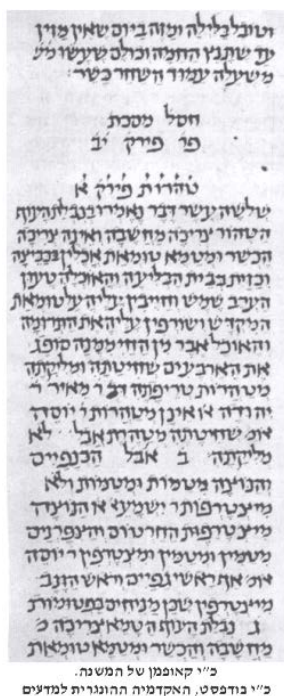 וטובל בלילה ומזה ביום שאין מזין
עד שתנץ החמה וכולם שעשו מש
משעלה עמוד השחר כשר :
חסל מסכת
פר פירק יב
טהרות פירק א
שלשה עשר דבר נאמרו בנבלת העוף
הטהור צריכה מחשבה ואינה צריכה
הכשר ומטמא טומאת אכלין בכביצה
וכזית בבית הבליעה והאוכלה טעון
הערב שמש וחייבין עליה על טומאת
המקדש ושורפין עליה את התרומה
והאוכל אבר מן החי ממנה סופג
את הארבעים שחיטתה ומליקתה
מטהרות טריפתה דבר ר מאיר ר
יהודה או אינן מטהרות ר יוסה
אומ שחיטתה מטהרת אבל לא
מליקתה ב אבל הכנפיים
והנוצה מטמות ומטמות ולא
מיצטרפות ר ישמעא או הנוצה
מיצטרפות החרטום והצפרנים
מטמין ומטמין ומצטרפין ר יוסה
אומ אף ראשי גפיים וראש הזנב
מיצטרפין שכן מניחים בפטומות
ג נבלת העוף הטמא צריכה מ
מחשבה והכשר ומטמא טומאת
כ"י קאופמן של המשנה.
כ"י בודפסט, האקדמיה ההונגרית למדעים